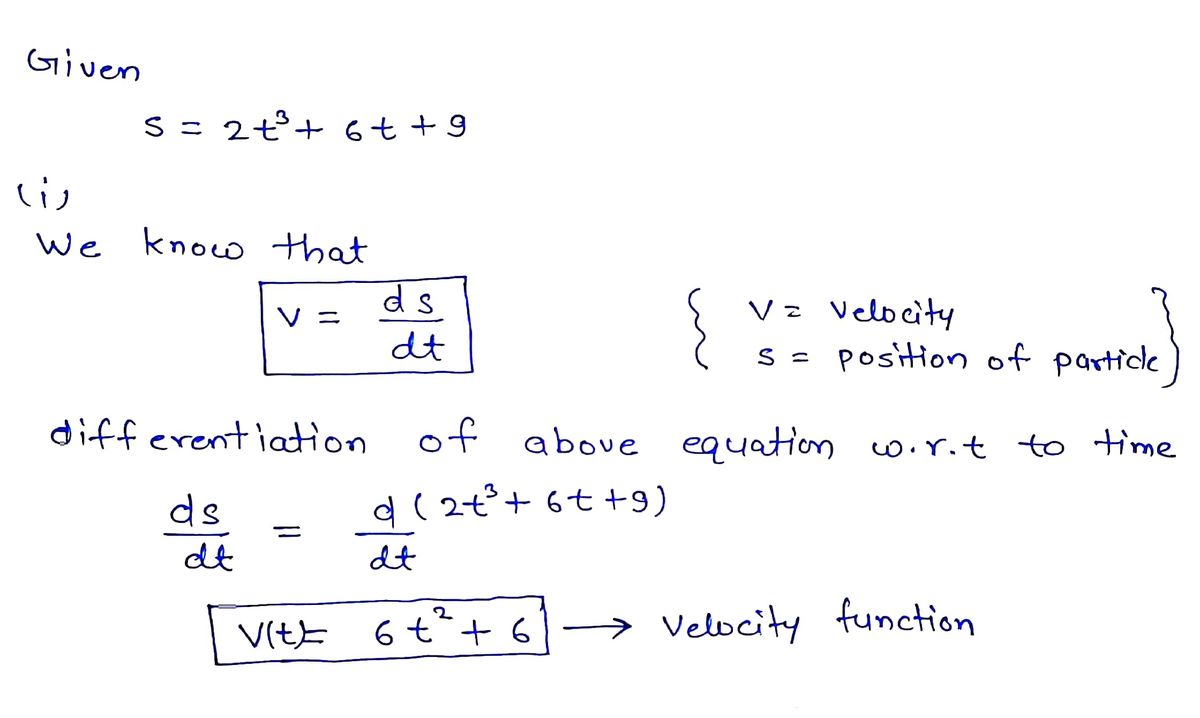 Given
s = 2t³ + 6t + 9
(i)
We know that
v = ds/dt { v = velocity
s = position of particle }
differentiation of above equation w.r.t to time
ds/dt = d(2t³ + 6t + 9)/dt
V(t) = 6t² + 6 → velocity function